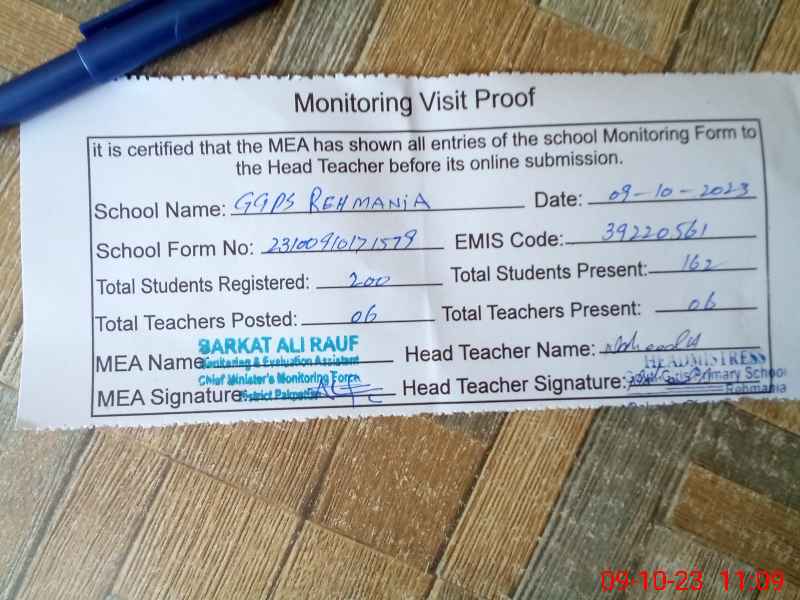 Monitoring Visit Proof
it is certified that the MEA has shown all entries of the school Monitoring Form to
the Head Teacher before its online submission.
School Name: GGPS REHMANiA Date: 09-10-2023
School Form No: 23100910171579 EMIS Code: 39220561
Total Students Registered: 200 Total Students Present: 162
Total Teachers Posted: 06 Total Teachers Present: 06
SARKAT ALI RAUF
MEA Name Monitoring & Evaluation Assistant Head Teacher Name:
HEADMISTRESS
Chief Minister's Monitoring Force
MEA Signature District Pakpattan Head Teacher Signature: Girls Primary School
Rehmania
09-10-23 11:09